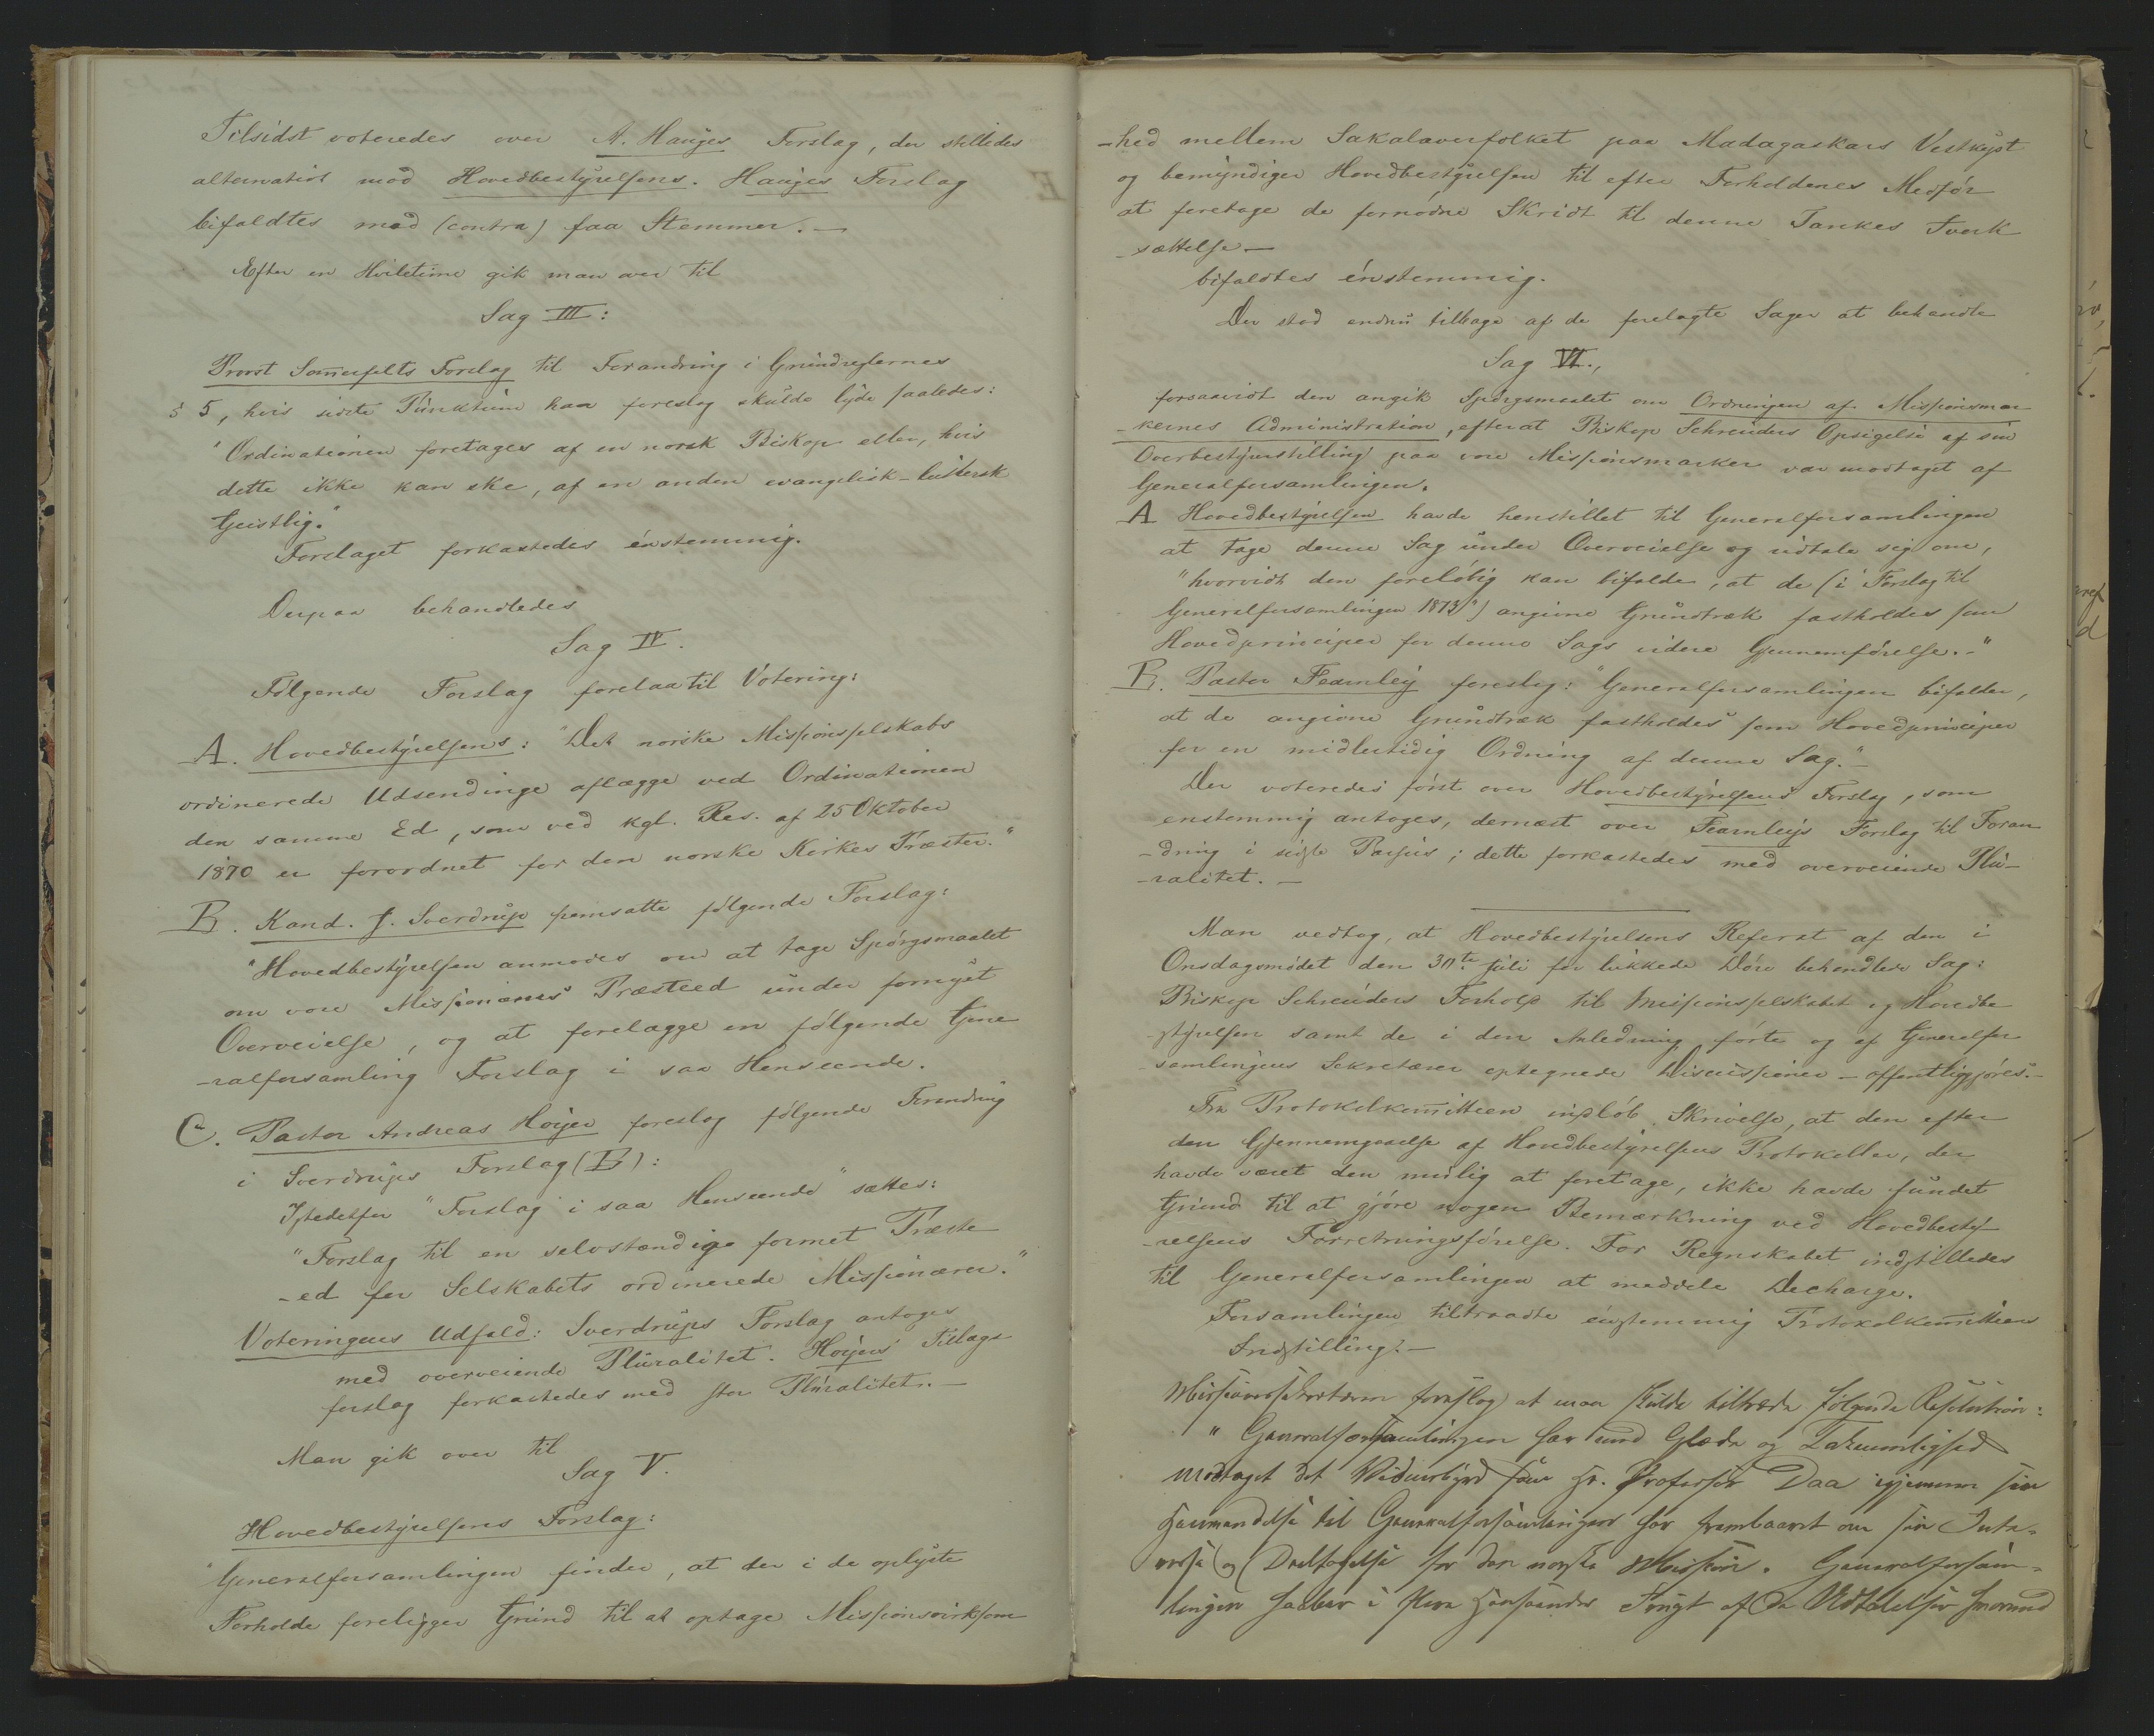 Tilsidst voteredes over A. Hauges Forslag, der stilledes
alternativt mod Hovedbestyrelsens. Hauges Forslag
bifaldtes mod (contra) faa Stemmer. —
Efter en Hviletime gik man over til
Sag III:
Provst Som̄erfelts Forslag til Forandring i Grundreglernes
§ 5, hvis sidste Punktum han foreslog skulde lyde saaledes:
"Ordinationen foretages af en norsk Biskop eller, hvis
dette ikke kan ske, af en anden evangelisk-luthersk
Geistlig."
Forslaget forkastedes énstemmig.
Derpaa behandledes
Sag IV.
Følgende Forslag forelaa til Votering:
A. Hovedbestyrelsens: "Det norske Missionsselskabs
ordinerede Udsendinge aflægge ved Ordinationen
den samme Ed, som ved kgl. Res. af 25 Oktober
1870 er forordnet for den norske Kirkes Præster."
B. Kand. J. Sverdrup fremsatte følgende Forslag:
"Hovedbestyrelsen anmodes om at tage Spørgsmaalet
om vore Missionærers Præsteed under fornyet
Overveielse, og at forelægge en følgende Gene
-ralforsamling Forslag i saa Henseende.
C. Pastor Andreas Høyer foreslog følgende Forandring
i Sverdrups Forslag (B):
Istedetfor "Forslag i saa Henseende" sættes:
"Forslag til en selvstændige formet Præste
-ed for Selskabets ordinerede Missionærer."
Voteringens Udfald: Sverdrups Forslag antoges
med overveiende Pluralitet. Høyers Tillægs
forslag forkastedes med stor Pluralitet. —
Man gik over til
Sag V.
Hovedbestyrelsens Forslag:
"Generalforsamlingen finder, at der i de oplyste
Forholde foreligger Grund til at optage Missionsvirksom
-hed mellem Sakalaverfolket paa Madagaskars Vestkyst
og bemyndiger Hovedbestyrelsen til efter Forholdenes Medfør
at foretage de fornødne Skridt til denne Tankes Iverk
-sættelse —
bifaldtes énstemmig.
Der stod endnu tilbage af de forelagte Sager at behandle
Sag VI.,
forsaavidt den angik Spørgsmaalet om Ordningen af Missionsmar
-kernes Administration, efterat Biskop Schreuders Opsigelse af sin
Overbestyrerstilling paa vore Missionsmarker var modtaget af
Generalforsamlingen.
A Hovedbestyrelsen havde henstillet til Generalforsamlingen
at tage denne Sag under Overveielse og udtale sig om,
"hvorvidt den foreløbig kan bifalde, at de (i "Forslag til
Generalforsamlingen 1873") angivne Grundtræk fastholdes som
Hovedprinciper for denne Sags videre Gjennemførelse. -"
B. Pastor Fearnley foreslog: "Generalforsamlingen bifalder,
at de angivne Grundtræk fastholdes som Hovedprinciper
for en midlertidig Ordning af denne Sag." —
Der voteredes først over Hovedbestyrelsens Forslag, som
enstemmig antoges, dernæst over Fearnleys Forslag til Foran
-dring i sidste Passus; dette forkastedes med overveiende Plu-
-ralitet. —
Man vedtog, at Hovedbestyrelsens Referat af den i
Onsdagsmødet den 30te Juli for lukkede Døre behandlede Sag:
Biskop Schreuders Forhold til Missionsselskabet og Hovedbe
-styrelsen samt de i den Anledning førte og af Generalfor
-samlingens Sekretærer optegnede Discussioner - offentliggjøres. —
Fra Protokolkom̄itteen indløb Skrivelse, at den efter
den Gjennemgaaelse af Hovedbestyrelsens Protokoller, der
havde været den mulig at foretage, ikke havde fundet
Grund til at gjøre nogen Bemærkning ved Hovedbesty
-relsens Forretningsførelse. For Regnskabet indstilledes
til Generalforsamlingen at meddele Decharge.
Forsamlingen tiltraadte énstemmig Protokolkom̄itteens
Indstilling. —
Missionssekretæren foreslog at man skulde tiltræde følgende Resolution:
"Generalforsamlingen har med Glæde og Taknemlighed
modtaget det Vidnesbyrd som Hr. Professor Daa igjennem sin
Henvendelse til Generalforsamlingen har frembaaret om sin Inte-
resse og Deeltagelse for den norske Mission. Generalforsam-
lingen haaber i flere Henseender Frugt af de Udtalelser